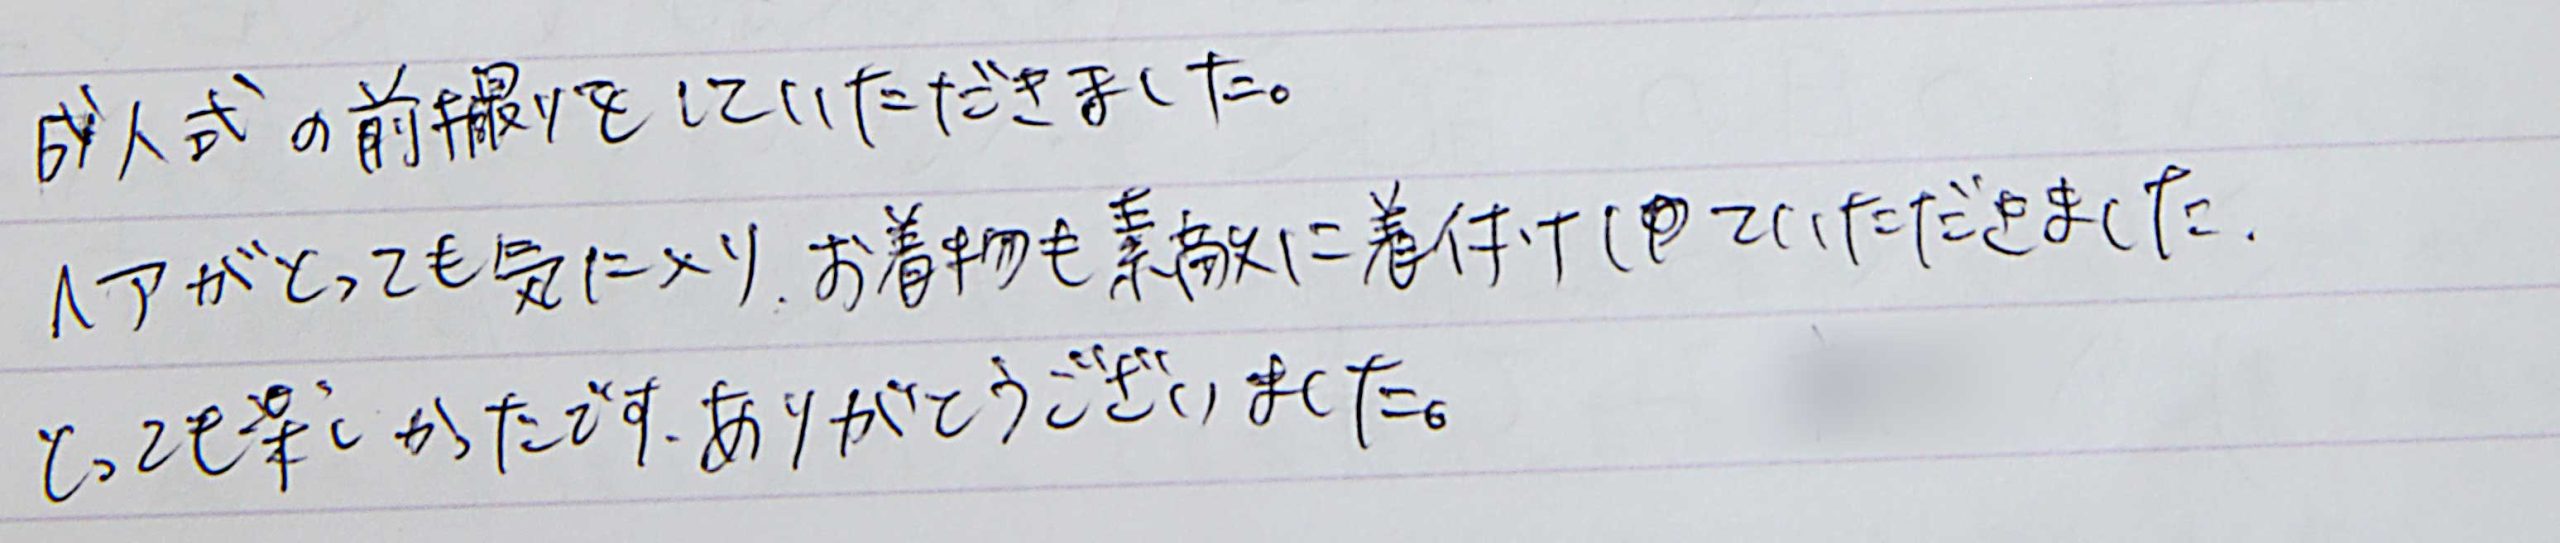 成人式の前撮りをしていただきました。
ヘアがとっても気に入り、お着物も素敵に着付けしていただきました。
とっても楽しかったです。ありがとうございました。